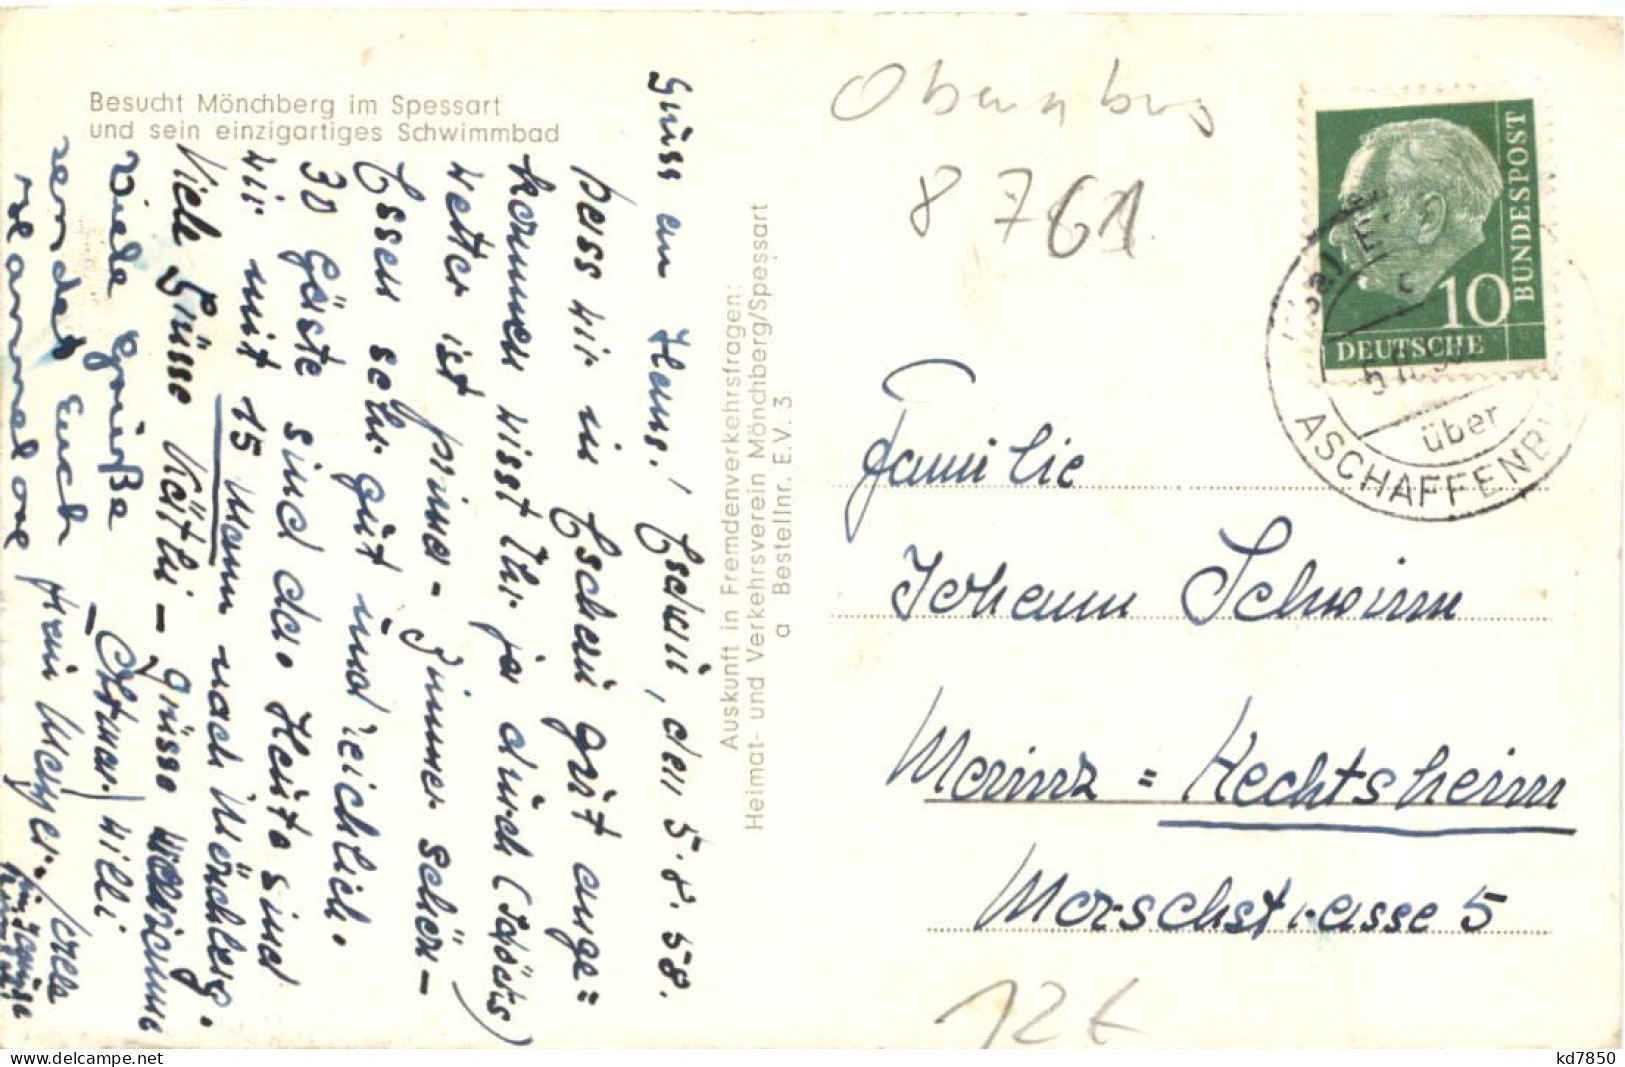 Besucht Mönchberg im Spessart
und sein einzigartiges Schwimmbad
Gruss an Hans! Eschau, den 5.8.58.
Dass wir in Eschau gut ange=
kommen wisst Ihr ja durch
wetter ist prima - Zimmer schön -
Essen sehr gut und reichlich.
30 Gäste sind da. Heute sind
wir mit 15 Mann nach Mönchberg.
Viele Grüsse Käthi - Grüsse
Viele Grüße Otmar Willi
sendet Euch
Hannelore
Auskunft in Fremdenverkehrsfragen:
Heimat- und Verkehrsverein Mönchberg/Spessart
a Bestellnr. E.V. 3
Obernburg
8761
BUNDESPOST
10
DEUTSCHE
über
ASCHAFFENB
Familie
Johann Schwinn
Mainz = Hechtsheim
Morschstrasse 5
12€
kd7850
www.delcampe.net